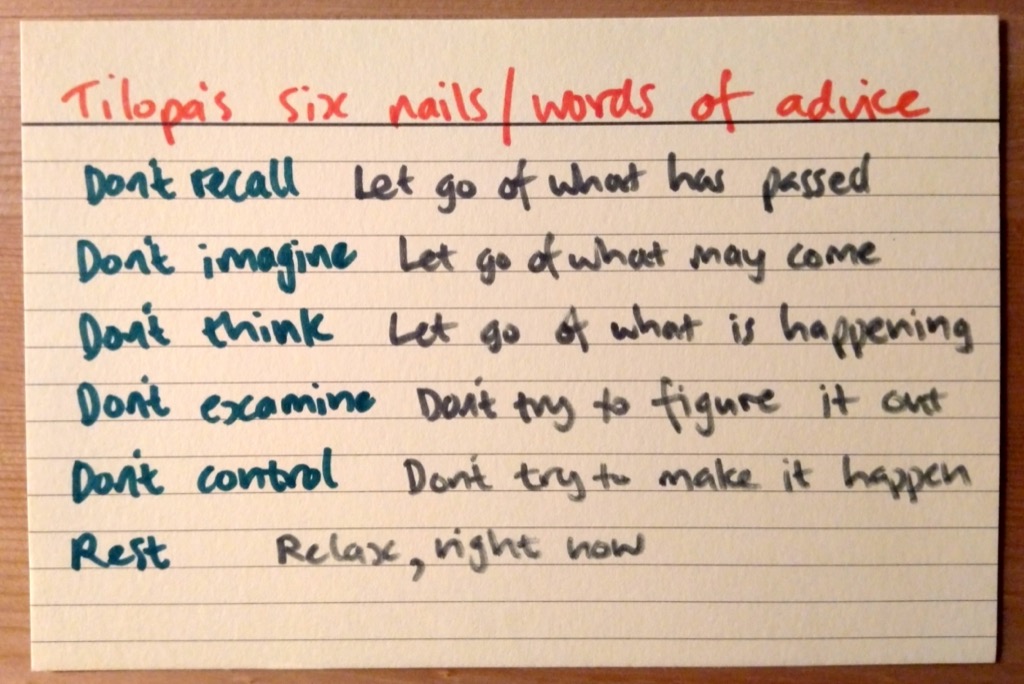 Tilopa's six nails/words of advice
Don't recall Let go of what has passed
Don't imagine Let go of what may come
Don't think Let go of what is happening
Don't examine Don't try to figure it out
Don't control Don't try to make it happen
Rest Relax, right now